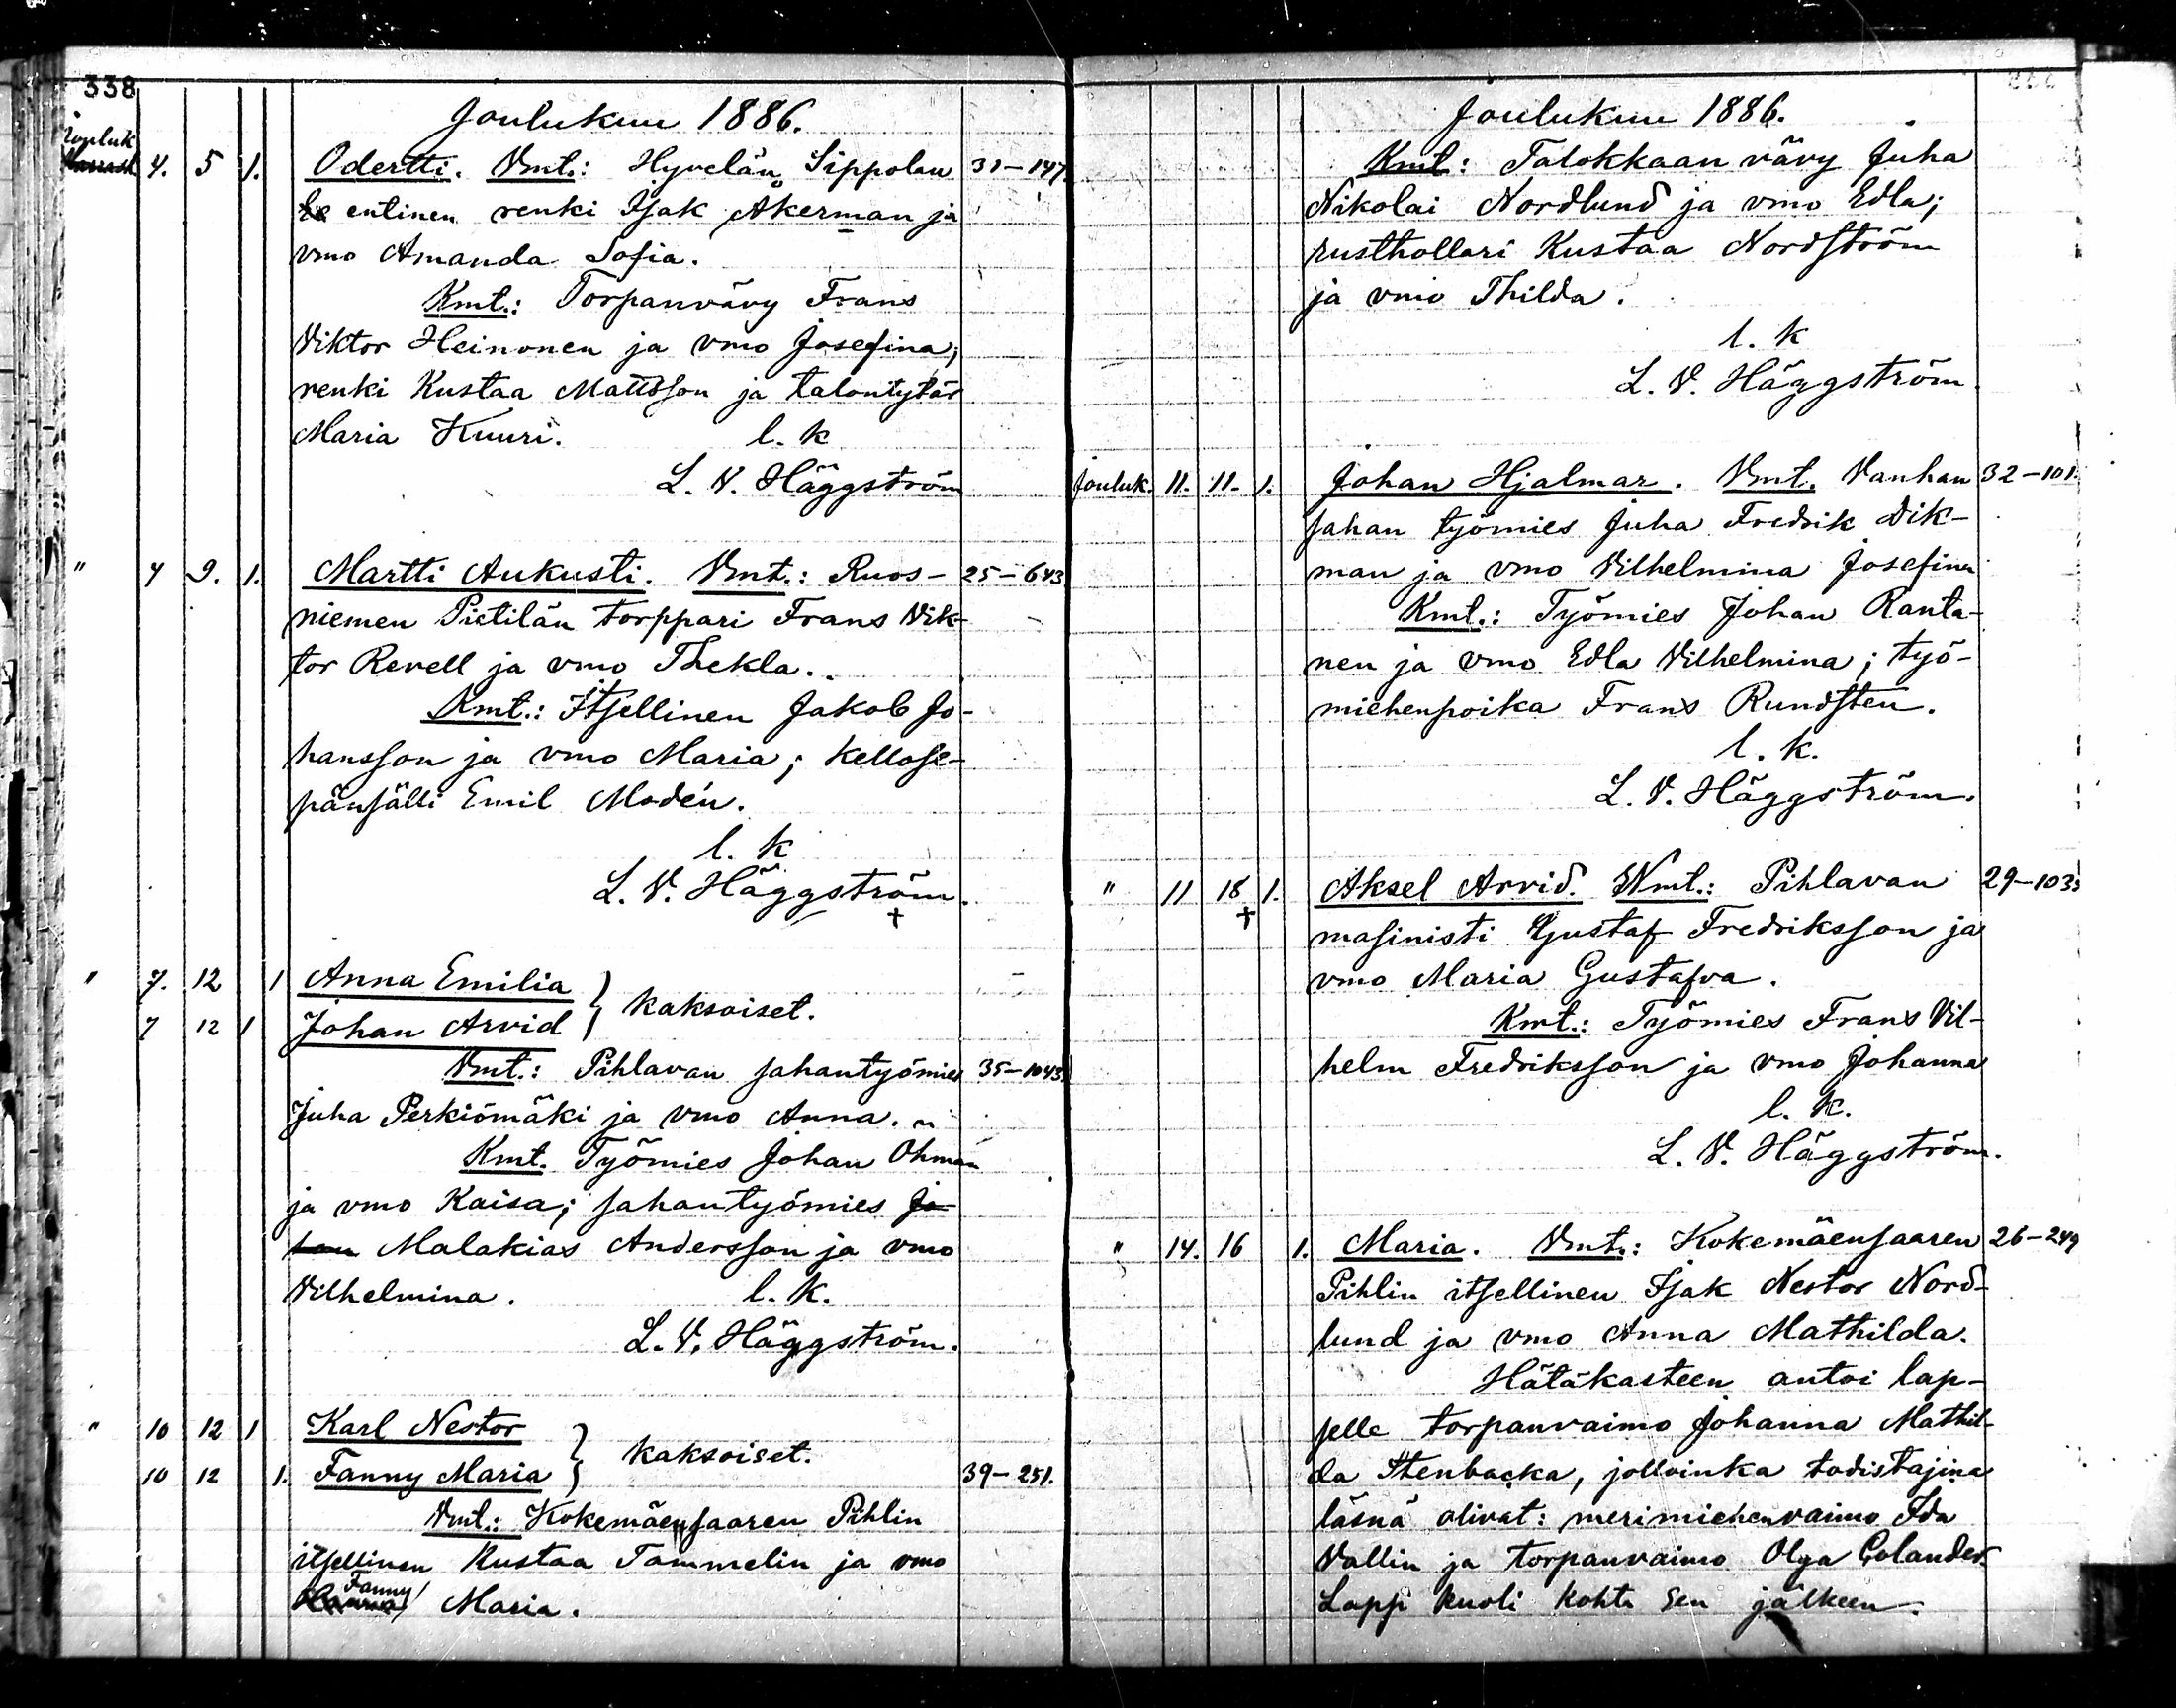 338
Joulukuu 1886.
Jouluk
4. 5 1. Odertti. Vmt.: Hyvelän Sippolan 31-147.
entinen renki Isak Åkerman ja
vmo Amanda Sofia.
Kmt.: Torpanvävy Frans
Viktor Heinonen ja vmo Josefina;
renki Kustaa Mattsson ja talontytär
Maria Kuuri. l. k
L. V. Häggström
" 4 9. 1. Martti Aukusti. Vmt.: Ruos- 25-643
niemen Pietilän torppari Frans Vik-
tor Revell ja vmo Thekla.
Kmt.: Itsellinen Jakob Jo-
hansson ja vmo Maria; kellose-
pänsälli Emil Modén.
l. k
L. V. Häggström.
†
" 7. 12 1 Anna Emilia
7 12 1 Johan Arvid } kaksoiset.
Vmt.: Pihlavan sahantyömies 35-1043.
Juha Perkiömäki ja vmo Anna.
Kmt. Työmies Johan Öhman
ja vmo Kaisa; sahantyömies Jo-
han Malakias Andersson ja vmo
Vilhelmina. l. k.
L. V. Häggström.
" 10 12 1 Karl Nestor
10 12 1. Fanny Maria } kaksoiset. 39-251.
Vmt.: Kokemäensaaren Pihlin
itsellinen Kustaa Tammelin ja vmo
Fanny
Maria.
Joulukuu 1886.
Kmt: Talokkaan vävy Juha
Nikolai Nordlund ja vmo Edla;
rusthollari Kustaa Nordström
ja vmo Thilda.
l. k
L. V. Häggström.
Jouluk. 11. 11. 1. Johan Hjalmar. Vmt. Vanhan 32-101.
sahan työmies Juha Fredrik Dik-
man ja vmo Vilhelmina Josefina
Kmt.: Työmies Johan Ranta-
nen ja vmo Edla Vilhelmina; työ-
miehenpoika Frans Rundsten.
l. k.
L. V. Häggström.
" 11 18 1. Aksel Arvid. Vmt.: Pihlavan 29-103
†
masinisti Gustaf Fredriksson ja
vmo Maria Gustafva.
Kmt.: Työmies Frans Vil-
helm Fredriksson ja vmo Johanna
l. k.
L. V. Häggström.
" 14. 16 1. Maria. Vmt.: Kokemäensaaren 26-249
Pihlin itsellinen Isak Nestor Nord-
lund ja vmo Anna Mathilda.
Hätäkasteen antoi lap-
selle torpanvaimo Johanna Mathil-
da Stenbacka, jolloinka todistajina
läsnä olivat: merimiehenvaimo Ida
Vallin ja torpanvaimo Olga Golander.
Laps kuoli kohta sen jälkeen.